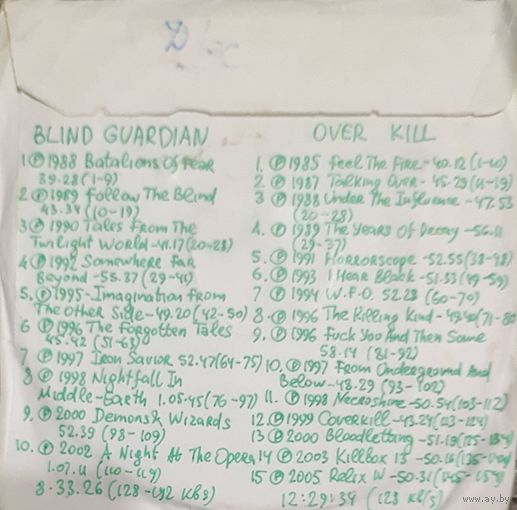 BLIND GUARDIAN
1 Ⓟ 1988 Batalions Of Fear
39.28 (1-9)
2 Ⓟ 1989 Follow The Blind
43.34 (10-19)
3 Ⓟ 1990 Tales From The
Twilight World - 41.17 (20-28)
4 Ⓟ 1992 Somewhere Far
Beyond - 55.37 (29-41)
5. Ⓟ 1995 - Imagination From
The Other Side - 49.20 (42-50)
6 Ⓟ 1996 The Forgotten Tales
45.42 (51-63)
7 Ⓟ 1997 Iron Savior 52.47 (64-75)
8 Ⓟ 1998 Nightfall In
Middle-Earth 1.05.45 (76-97)
9. Ⓟ 2000 Demons & Wizards
52.39 (98-109)
10. Ⓟ 2002 A Night At The Opera
1.07.11 (110-119)
8.33.26 (128-192 kbs)
OVER KILL
1. Ⓟ 1985 Feel The Fire - 40.12 (1-10)
2. Ⓟ 1987 Talking Over - 45.29 (11-19)
3 Ⓟ 1988 Under The Influence - 47.53
(20-28)
4. Ⓟ 1989 The Years Of Decay - 56.11
(29-37)
5. Ⓟ 1991 Horrorscope - 52.55 (38-48)
6. Ⓟ 1993 I Hear Black - 51.33 (49-59)
7 Ⓟ 1994 W.F.O. 52.28 (60-70)
8 Ⓟ 1996 The Killing Kind - (71-80
9. Ⓟ 1996 Fuck You And Then Some
58.14 (81-92)
10. Ⓟ 1997 From Underground And
Below - 48.29 (93-102)
11. Ⓟ 1998 Necroshine - 50.54 (103-112)
12 Ⓟ 1999 Coverkill - 43.24 (113-124)
13 Ⓟ 2000 Bloodletting - 51.19 (125-134)
14 Ⓟ 2003 Killbox 13 - (135-144)
15 Ⓟ 2005 Relix IV - 50.31 (145-154)
12:29:34 (128 kb/s)
www.ay.by